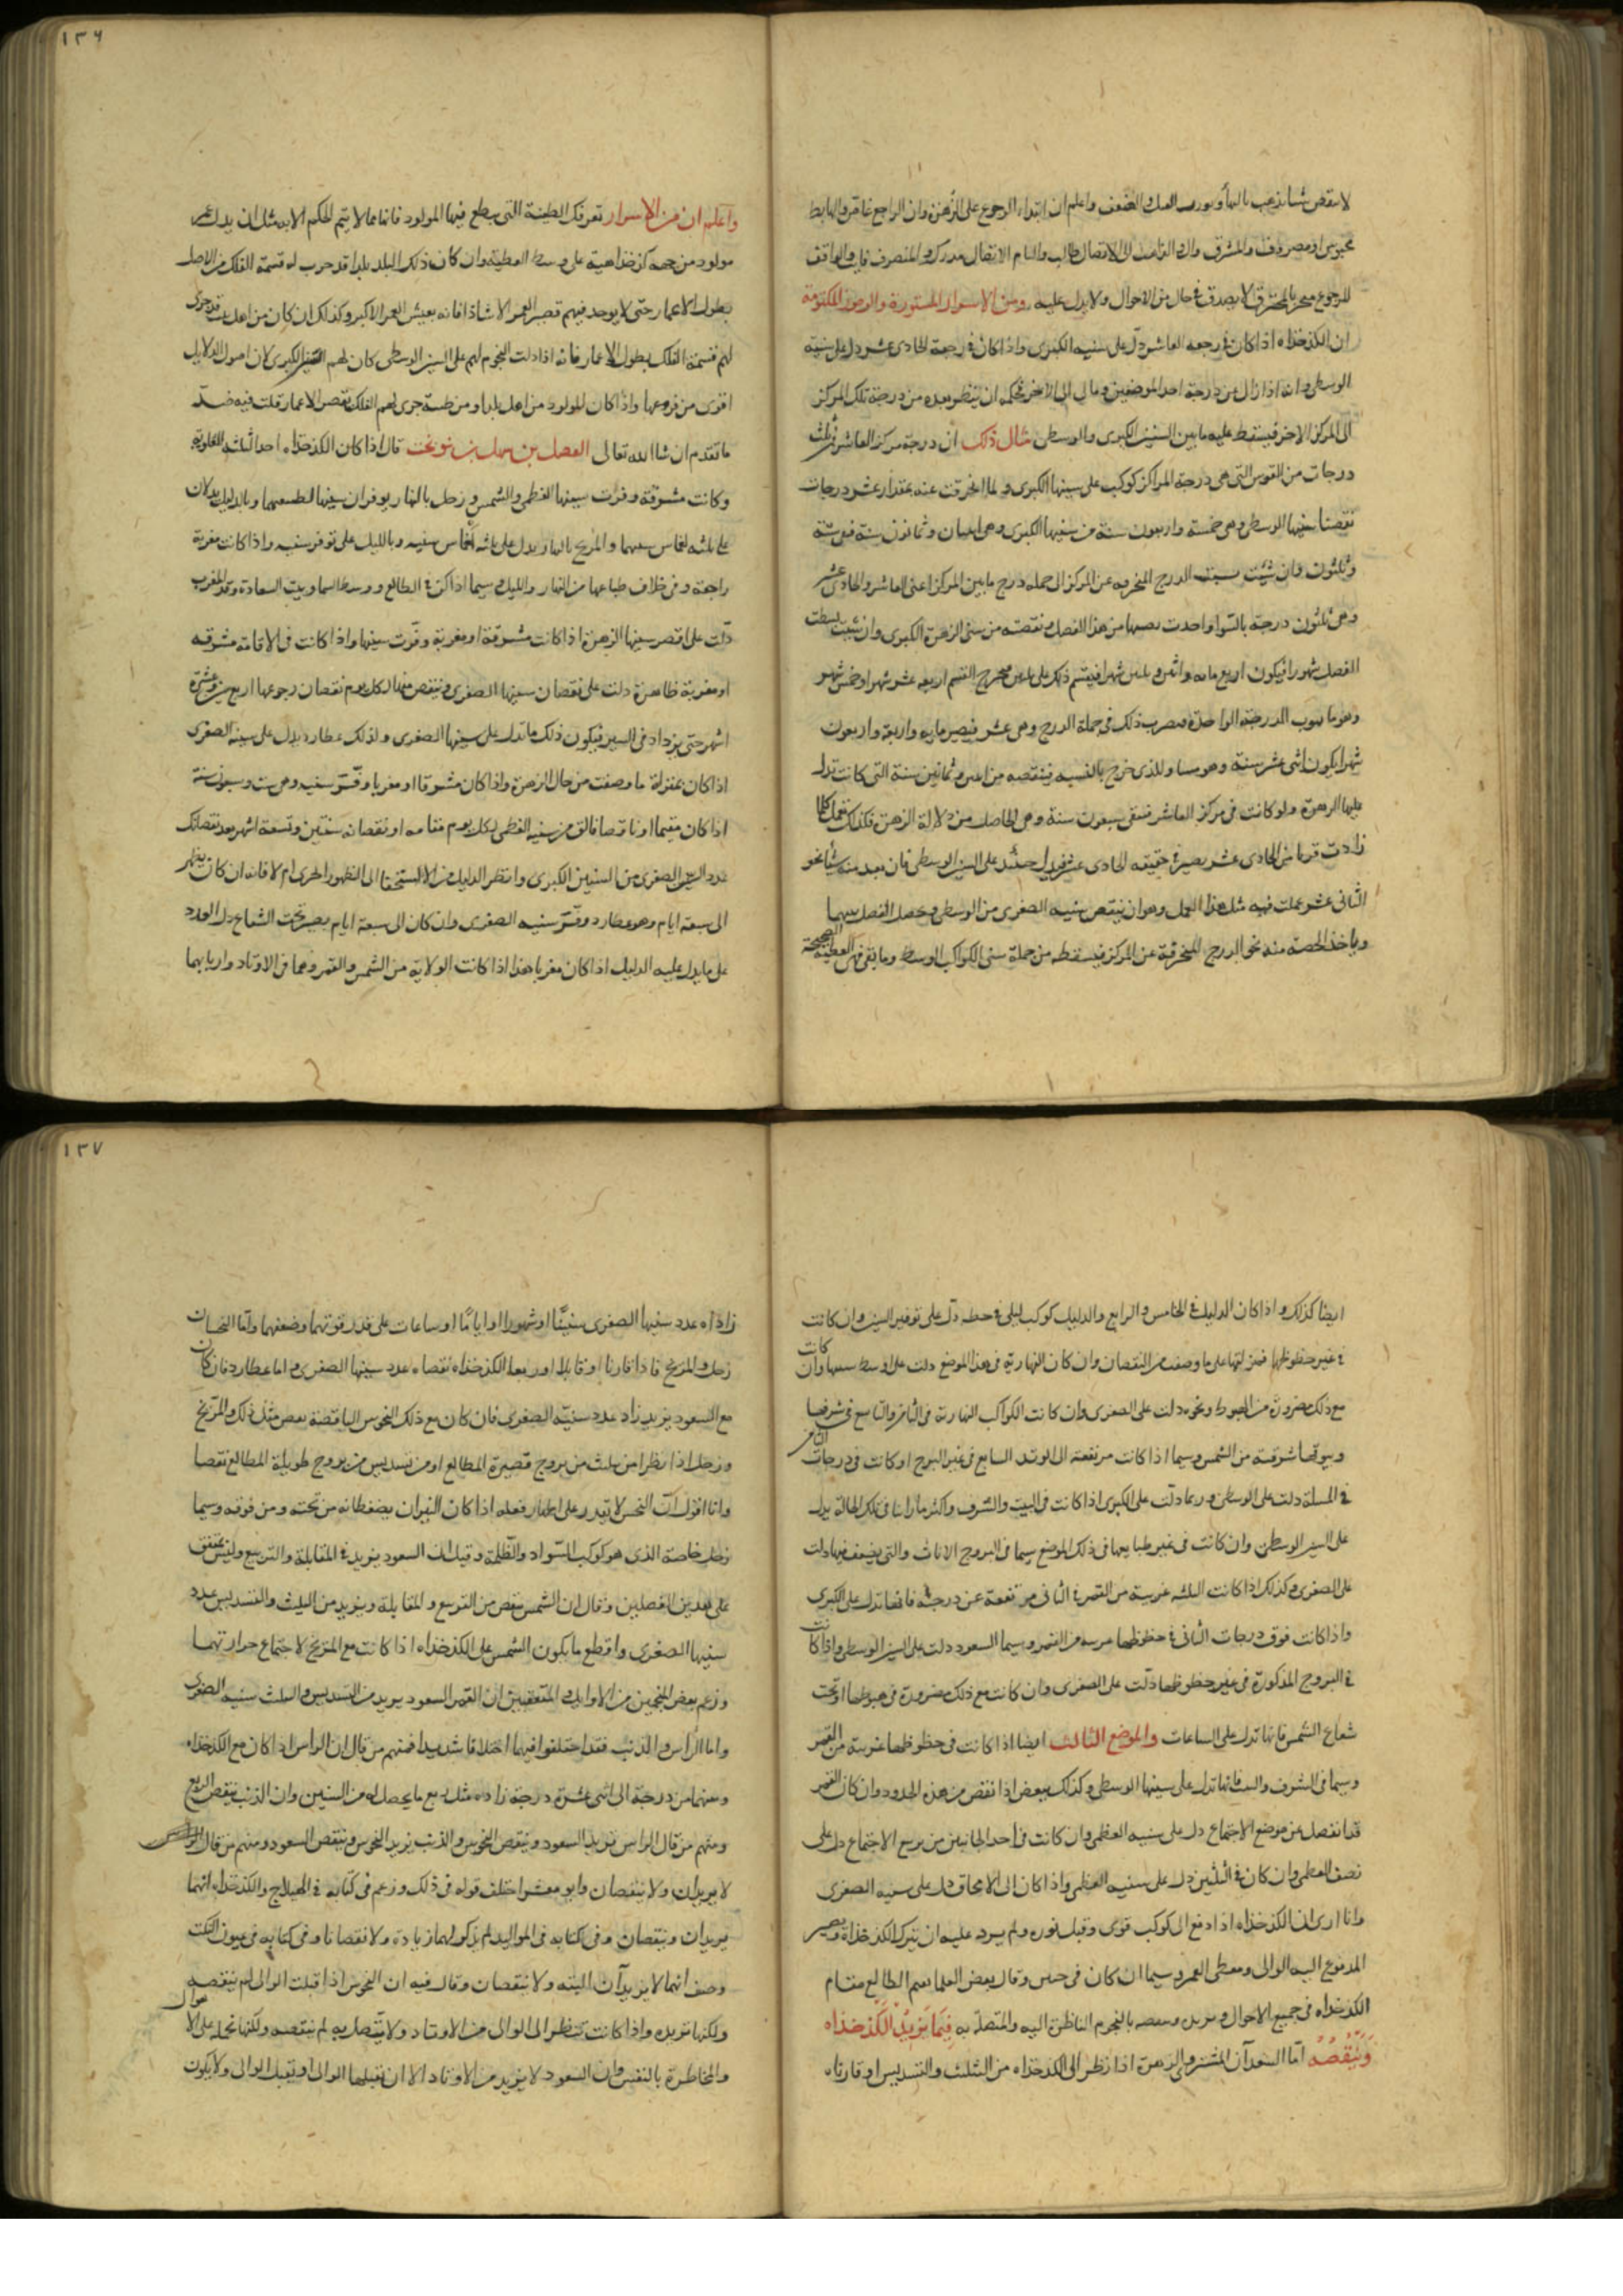 ١٣٦
لا ينقص شيئا واعلم ان ابتداء الرجوع على الزهرة وان الراجع والهابط
محبوس او مصروف والمشرق الاتصال طالب والتام الاتصال مدرك والمنصرف فايت والواقف
للرجوع متحير والمحترق لا يصدق في حال من الاحوال ولا يدل عليه ومن الاسرار المستورة والرموز المكتومة
ان الكذخذاه اذا كان في درجة العاشر دلّ على سنيه الكبرى واذا كان في درجة الحادى عشر دل على سنيه
الوسطى وانه اذا زال عن درجة احد الموضعين ومال الى الاخر فحكمه ان ينظر بعده من درجة تلك المركز
الى المركز الاخر فيسقط عليه ما بين السنين الكبرى والوسطى مثال ذلك ان درجة مركز العاشر في ثلث
درجات من القوس التى هى درجة المراكز كوكب على سنيها الكبرى ولما انحرفت عنه بمقدار عشر درجات
نقصنا سنيها الوسطى وهى خمسة واربعون سنة من سنيها الكبرى وهى اثنان وثمانون سنة فبقى ستة
وثلثون وان شئت الدرج المنحرفه عن المركز الى جمله درج ما بين المركز اعنى العاشر والحادى عشر
وهى ثلثون درجة بالسوا واخذت نصيبها من هذا الفصل ونقصته من سنى الزهرة الكبرى وان شئت بسطت
الفصل شهورا فيكون اربع مايه واثنين وثلثين شهرا فيقسم ذلك على ثلثين فيخرج القسم اربعه عشر شهرا وخمس شهر
وهو ما ينوب الدرجة الواحدة فيضرب ذلك في جملة الدرج وهى عشر فيصير مايه واربعة واربعون
شهرا يكون اثنى عشر سنة وهو مساو للذى خرج بالنسبه فينقصه من اثنين وثمانين سنة التى كانت تدل
عليها الزهرة ولو كانت في مركز العاشر فتبقى سبعون سنة وهى الحاصل من دلالة الزهرة فكذلك تعمل كلما
زادت قربا من الحادى عشر يصير في حقيقه الحادى عشر فيدل حينئذ على السنين الوسطى فان بعد منه شيئا نحو
الثانى عشر عملت فيه مثل هذا العمل وهو ان ينقص سنيه الصغرى من الوسطى وتحصل الفصل بينهما
وياخذ الحصة منه نحو الدرج المنحرفة عن المركز فيسقطه من جملة سنى الكواكب الوسطى وما بقى فهى العطية الصحيحة
واعلم ان من الاسرار تعرفك الطينة التى يطلع فيها المولود فانها مما لا يتم الحكم الا به مثل ان يدل على عمر
مولود من جهه كذخذاهيته على وسط العطية وان كان ذلك البلد بلدا قد جرت له قسمة الفلك في الاصل
بطول الاعمار حتى لا يوجد فيهم قصير العمر الا شاذا فانه يعيش العمر الاكبر وكذلك ان كان من اهل بيت قد جرى
لهم قسمة الفلك بطول الاعمار فانه اذا دلت النجوم لهم على السنين الوسطى كان لهم الكبرى لان اصول الدلايل
اقوى من فروعها واذا كان المولود من اهل بلد او من طينة جرى لهم الفلك بقصر الاعمار قلت فيه ضد
ما تقدم ان شا الله تعالى الفضل بن سهل بن نوبخت قال اذا كان الكذخذاه احد الثلثه العلويه
وكانت مشرقة وفرت سنيها العظمى والشمس وزحل بالنهار يوفران سنيها لطبيعتهما وبالليل يدلان
على ثلثه اخماس سنيهما والمريخ بالنهار يدل على ثلثه اخماس سنيه وبالليل على توفر سنيه واذا كانت مغربة
راجعة وفى خلاف طباعها من النهار والليل سيما اذا كن في الطالع ووسط السما وبيت السعادة وتد المغرب
دلّت على اقصر سنيها الزهرة اذا كانت مشرقة او مغربة وفّرت سنيها واذا كانت في الاقامة مشرقه
او مغربة ظاهرة دلت على نقصان سنيها الصغرى وينقص منها لكل يوم نقصان رجوعها اربع سنين وعشرة
اشهر حتى يزداد فى السير فيكون ذلك ما تدل على سنيها الصغرى وكذلك عطارد يدل على سنيه الصغرى
اذا كان بمنزلة ما وصفت من حال الزهرة واذا كان مشرقا او مغربا وفّر سنيه وهى ست وسبعون سنة
اذا كان مقيما او ناقصا فالق من سنيه العظمى لكل يوم مقامه او نقصانه سنتين وتسعة اشهر بعد نقصانك
عدد السنين الصغرى من السنين الكبرى وانظر الدليل من الاستخفا الى الظهور اخرى ام لا فانه ان كان يظهر
الى سبعة ايام وهو عطارد وفّر سنيه الصغرى وان كان الى سبعة ايام يصير تحت الشعاع دل العدد
على ما يدل عليه الدليل اذا كان مغربا هذا اذا كانت الولاية من الشمس والقمر وهما في الاوتاد واربابهما
١٣٧
ايضا كذلك واذا كان الدليل في الخامس والرابع والدليل كوكب ليلى في حظه دلّ على توفير السنين وان كانت
في غير حظوظها فمنزلتها على ما وصفت من النقصان وان كان النهارية في هذا الموضع دلت على اوسط سنيها وان كانت
مع ذلك مضرورة من الهبوط ونحوه دلت على الصغرى وان كانت الكواكب النهارية في الثامن والتاسع في شرفها
وبيوتها شرقية من الشمس وسيما اذا كانت مرتفعة الى الوتد السابع في غير البرج او كانت في درجات الثامن
دلت على الوسطى وربما دلّت على الكبرى اذا كانت في البيت والشرف واكثر ما راينا في تلك الحالة يدل
على السنين الوسطى وان كانت في غير طبايعها في ذلك الموضع سيما في البروج الاناث والتى يضعف فيها دلت
على الصغرى وكذلك اذا كانت الثلثه غربية من القمر في الثانى مرتفعة عن درجته فانها تدل على الكبرى
واذا كانت فوق درجات الثانى في حظوظها من القمر وسيما السعود دلت على السنين الوسطى واذا كانت
في البروج المذكورة في غير حظوظها دلّت على الصغرى وان كانت مع ذلك مضرورة في هبوطها او تحت
شعاع الشمس فانها تدل على الساعات والموضع الثالث ايضا اذا كانت في حظوظها غربية من القمر
وسيما في الشرف والبيت فانها تدل على سنيها الوسطى وكذلك ينقص اذا نقص من هذه الحدود وان كان القمر
قد انفصل عن موضع الاجتماع دل على سنيه العظمى وان كانت في احد الجانبين من تربيع الاجتماع دل على
نصف العظمى وان كان في الثلثين دل على سنيه العظمى واذا كان الى الامحاق دل على سنيه الصغرى
وانا ارى ان الكذخذاه اذا دفع الى كوكب قوى وقبل نوره ولم يرد عليه ان يترك الكذخذاه ويصير
المدفوع اليه الوالى ومعطى العمر وسيما ان كان في وقال بعض العلما الطالع مقام
الكذخذاه في جميع الاحوال ويزيد وينقصه بالنجوم الناظرة اليه والمتصلة به فيما يزيد الكذخذاه
وينقصه اما السعدان المشترى والزهرة اذا نظر الى الكذخذاه من التثليث والتسديس او قارناه
زاداه عدد سنيها الصغرى سنينًا او شهورا او ايامًا او ساعات على قدر قوتهما وضعفهما وامّا النحسان
زحل والمريخ فاذا قارنا او قابلا او ربعا الكذخذاه نقصاه عدد سنيها الصغرى واما عطارد فان كان
مع السعود يزيد زاد عدد سنيّه الصغرى فان كان مع ذلك النحوس الناقصة بعض مثل ذلك والمريخ
وزحل اذا نظرا من ثلث من بروج قصيرة المطالع او من تسديس من بروج طويلة المطالع نقصا
وانا اقول ان النحس لا يقدر على اظهار فعله اذا كان النيران يضغطانه من تحته ومن فوقه وسيما
زحل خاصة الذى هو كوكب السّواد والظلمة وقيل ان السعود يزيد في المقابلة والتربيع وليس بمتفق
على هذين الفصلين وقال ان الشمس ينقص من التربيع والمقابلة ويزيد من التثليث والتسديس عدد
سنيها الصغرى واقطع ما يكون الشمس على الكذخذاه اذا كانت مع المريخ لاجتماع حرارتهما
وزعم بعض المنجمين من الاوايل المتعقبين ان القمر السعود يزيد من التسديس والتثليث سنيه الصغرى
واما الرأس والذنب فقد اختلفوا فيهما اختلافا شديدا فمنهم من قال ان الراس اذا كان مع الكذخذاه
وبينهما من درجة الى اثنى عشرة درجة زاده مثل ربع ما يحصل له من السنين وان الذنب ينقص الربع
ومنهم من قال الراس يزيد السعود وينقص النحوس والذنب يزيد النحوس وينقص السعود ومنهم من قال
لا يزيدان ولا ينقصان وابو معشر اختلف قوله في ذلك وزعم في كتابه في الهيلاج والكذخذاه انهما
يزيدان وينقصان وفى كتابه في المواليد لم يذكر لهما زيادة ولا نقصانا وفى كتابه في عيون النكت
وصف انهما لا يزيدان البته ولا ينقصان وقال فيه ان النحوس اذا قبلت الوالى لم ينقصه
ولكنها تزيده واذا كانت تنظر الى الوالى من الاوتاد ولا يتّصل به لم ينقصه ولكنها تحمله على الاهوال
والمخاطرة بالنفس وان السعود لا يزيد من الاوتاد الا ان يقبلها الوالى او يقبل الوالى ولا يكون